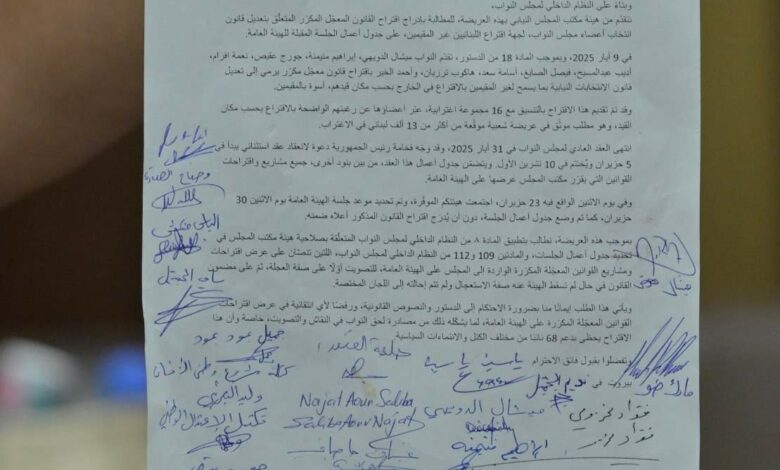 وبناءً على النظام الداخلي لمجلس النواب،
نتقدّم من هيئة مكتب المجلس النيابي بهذه العريضة، للمطالبة بإدراج اقتراح القانون المعجّل المكرّر المتعلّق بتعديل قانون
انتخاب أعضاء مجلس النواب، لجهة اقتراع اللبنانيين غير المقيمين، على جدول أعمال الجلسة المقبلة للهيئة العامة.
في 9 أيار 2025، وبموجب المادة 18 من الدستور، تقدّم النواب ميشال الدويهي، إبراهيم منيمنة، جورج عقيص، نعمة افرام،
أديب عبدالمسيح، فيصل الصايغ، أسامة سعد، هاكوب ترزيان، وأحمد الخير باقتراح قانون معجّل مكرّر يرمي إلى تعديل
قانون الانتخابات النيابية بما يسمح لغير المقيمين بالاقتراع في الخارج بحسب مكان قيدهم، أسوة بالمقيمين.
وقد تمّ تقديم هذا الاقتراح بالتنسيق مع 16 مجموعة اغترابية، عبّر أعضاؤها عن رغبتهم الواضحة بالاقتراع بحسب مكان
القيد، وهو مطلب موثّق في عريضة شعبية موقّعة من أكثر من 13 ألف لبناني في الاغتراب.
انتهى العقد العادي لمجلس النواب في 31 أيار 2025، وقد وجّه فخامة رئيس الجمهورية دعوة لانعقاد عقد استثنائي يبدأ في
5 حزيران ويُختتم في 10 تشرين الأول. ويتضمّن جدول أعمال هذا العقد، من بين بنود أخرى، جميع مشاريع واقتراحات
القوانين التي يقرّر مكتب المجلس عرضها على الهيئة العامة.
وفي يوم الاثنين الواقع فيه 23 حزيران، اجتمعت هيئتكم الموقّرة، وتمّ تحديد موعد جلسة الهيئة العامة يوم الاثنين 30
حزيران، كما تمّ وضع جدول أعمال الجلسة، دون أن يُدرج اقتراح القانون المذكور أعلاه ضمنه.
بموجب هذه العريضة، نطالب بتطبيق المادة 8 من النظام الداخلي لمجلس النواب المتعلّقة بصلاحية هيئة مكتب المجلس في
تحديد جدول أعمال الجلسات، والمادتين 109 و112 من النظام الداخلي لمجلس النواب، اللتين تنصّان على عرض اقتراحات
ومشاريع القوانين المعجّلة المكررة الواردة إلى المجلس على الهيئة العامة، للتصويت أوّلًا على صفة العجلة، ثمّ على مضمون
القانون في حال لم تسقط الهيئة عنه صفة الاستعجال ولم تتم إحالته إلى اللجان المختصة.
ويأتي هذا الطلب إيمانًا منا بضرورة الاحتكام إلى الدستور والنصوص القانونية، ورفضًا لأي انتقائية في عرض اقتراحات
القوانين المعجّلة المكرّرة على الهيئة العامة، لما يشكّله ذلك من مصادرة لحق النواب في النقاش والتصويت، خاصة وأن هذا
الاقتراح يحظى بدعم 68 نائبًا من مختلف الكتل والانتماءات السياسية.
وتفضلوا بقبول فائق الاحترام
بيروت في
وضاح الصادق
الياس
سامي الجميل
جميل عبود عبود
وليد البعريني
تكتل الاعتدال الوطني
ياسين ياسين
نديم الجميل
Najat Aoun Saliba
ميشال الدويهي
ابراهيم منيمنة
فؤاد مخزومي
مارك ضو